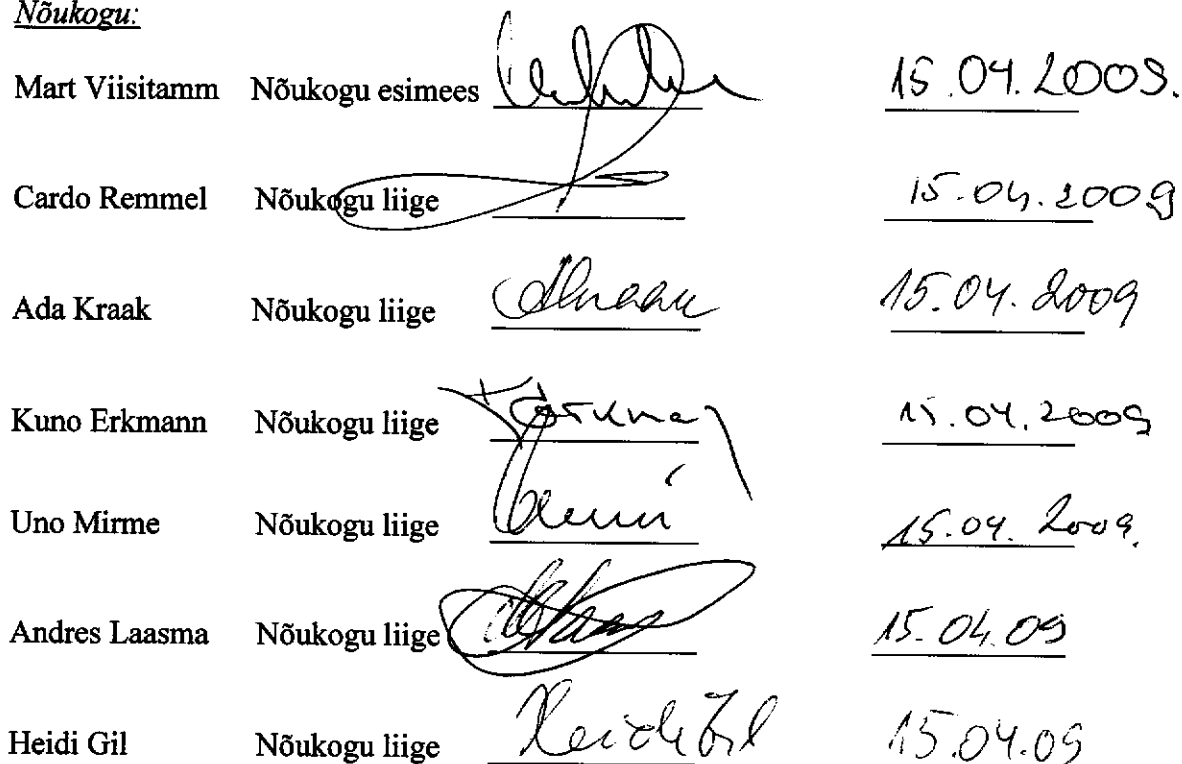 Nõukogu:
Mart Viisitamm Nõukogu esimees 15.04.2009.
Cardo Remmel Nõukogu liige 15.04.2009
Ada Kraak Nõukogu liige 15.04.2009
Kuno Erkmann Nõukogu liige 15.04.2009
Uno Mirme Nõukogu liige 15.04.2009.
Andres Laasma Nõukogu liige 15.04.09
Heidi Gil Nõukogu liige Heidi Gil 15.04.09